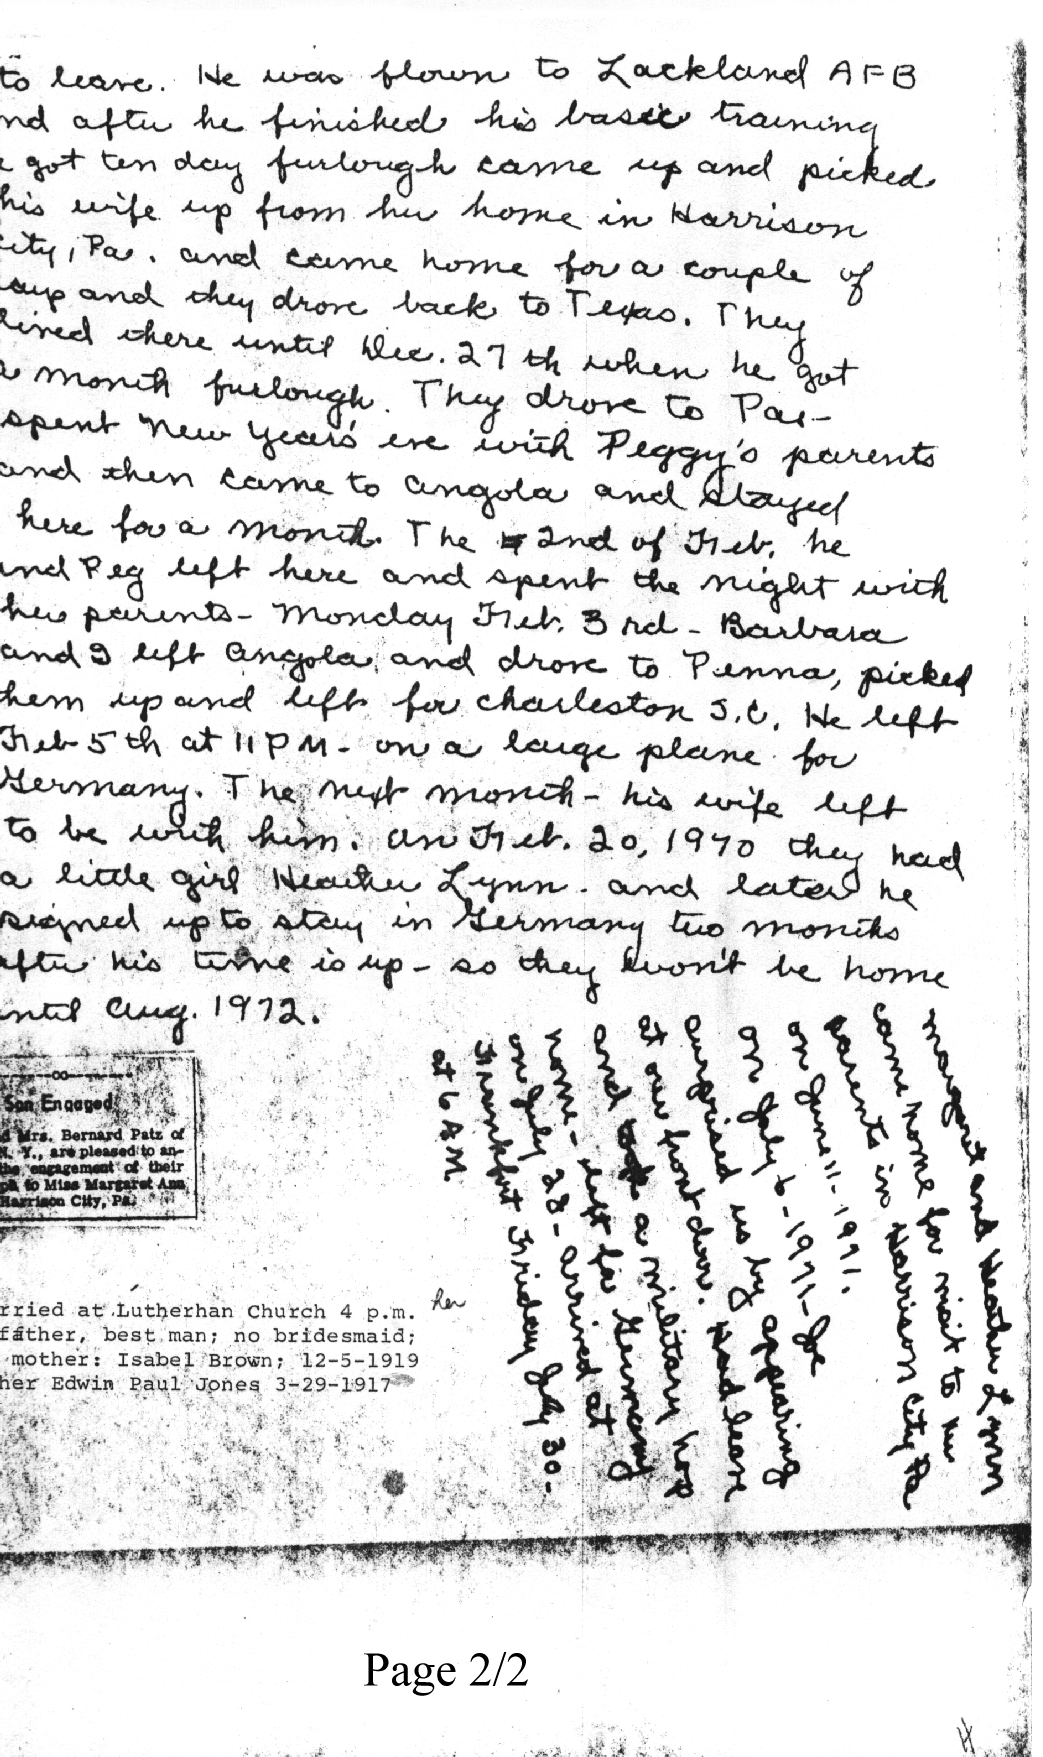 to leave. He was flown to Lackland AFB
nd after he finished his basic training
e got ten day furlough came up and picked
his wife up from her home in Harrison
city, Pa. and came home for a couple of
days and they drove back to Texas. They
lived there until Dec. 27th when he got
a month furlough. They drove to Pa.-
spent New Year's eve with Peggy's parents
and then came to Angola and stayed
here for a month. The 2nd of Feb. he
and Peg left here and spent the night with
her parents - Monday Feb. 3rd - Barbara
and I left Angola, and drove to Penna, picked
them up and left for Charleston S.C. He left
Feb 5th at 11 PM - on a large plane for
Germany. The next month - his wife left
to be with him. On Feb. 20, 1970 they had
a little girl Heather Lynn. and later he
signed up to stay in Germany two months
after his time is up - so they won't be home
until Aug. 1972.
Margaret and Heather Lynn
came home for visit to her
parents in Harrison City Pa
on June 11 - 1971.
on July 6 - 1971 - Joe
surprised us by appearing
at our front door. Had leave
and took a military hop
home - left for Germany
on July 28 - arrived at
Frankfurt Friday July 30 -
at 6 AM.
Son Engaged
d Mrs. Bernard Patz of
N. Y., are pleased to an-
the engagement of their
ph to Miss Margaret Ann
Harrison City, Pa.
rried at Lutherhan Church 4 p.m.
her
father, best man; no bridesmaid;
mother: Isabel Brown; 12-5-1919
her Edwin Paul Jones 3-29-1917
Page 2/2
H